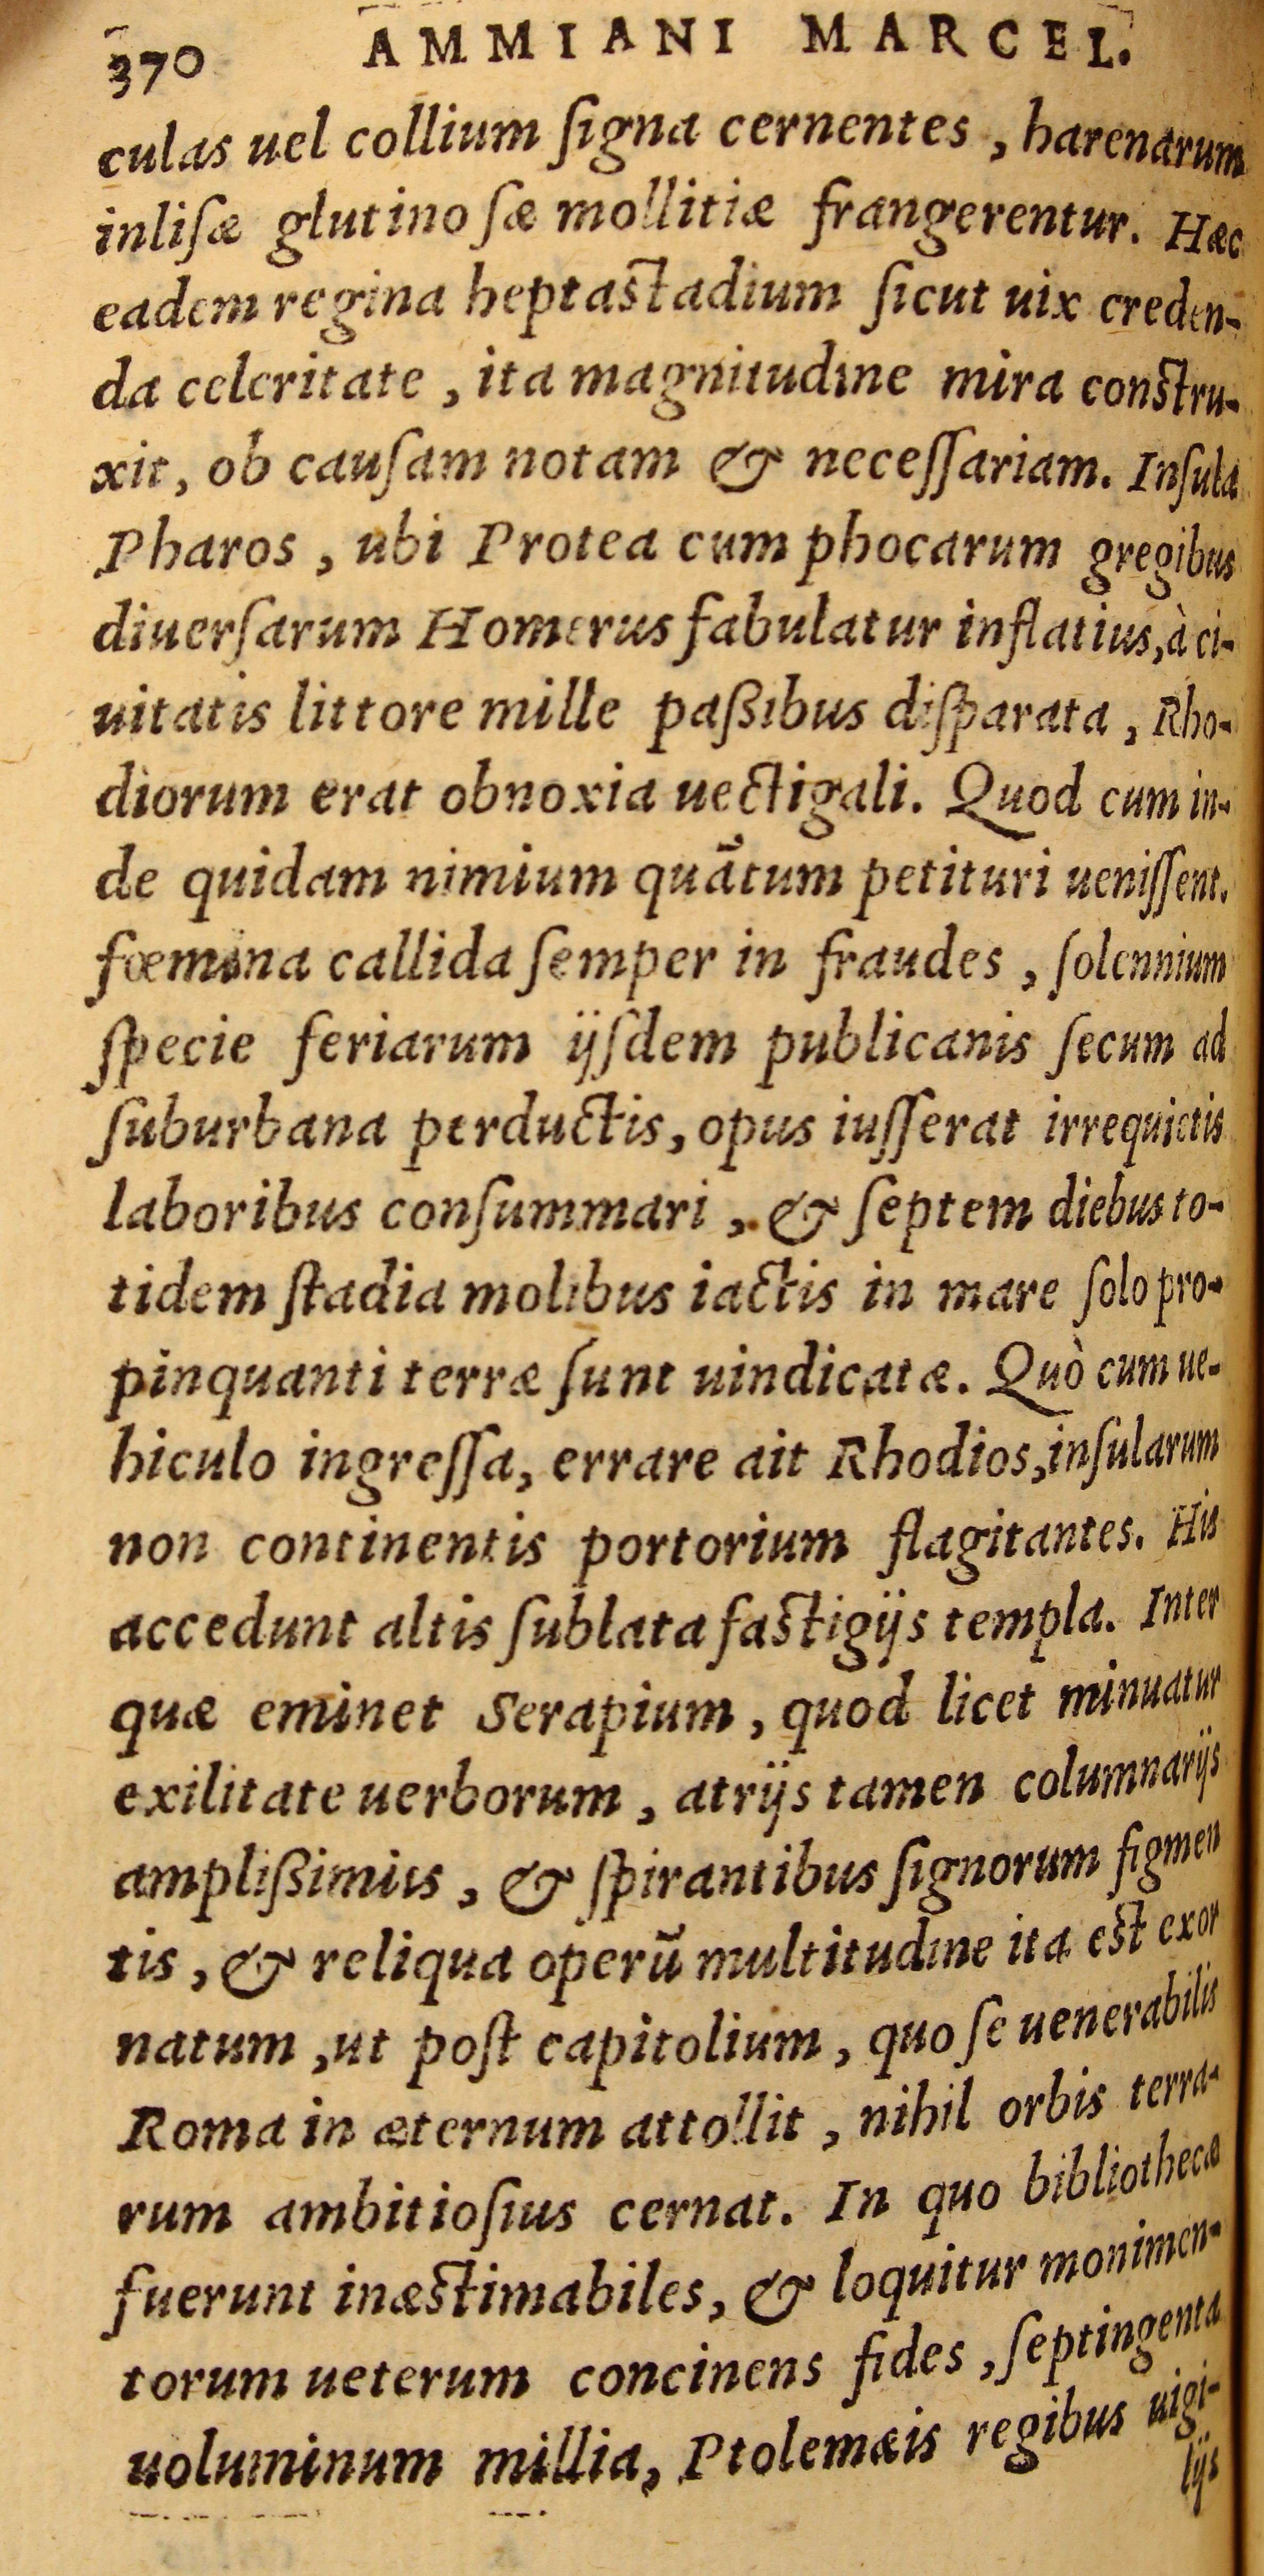 370 AMMIANI MARCEL.
culas uel collium ſigna cernentes, harenarum
inliſæ glutinoſæ mollitiæ frangerentur. Hæc
eadem regina heptastadium ſicut uix creden-
da celeritate, ita magnitudine mira constru-
xit, ob cauſam notam & neceſſariam. Inſula
Pharos, ubi Protea cum phocarum gregibus
diuerſarum Homerus fabulatur inflatius, à ci-
uitatis littore mille paßibus diſparata, Rho-
diorum erat obnoxia uectigali. Quod cum in-
de quidam nimium quãtum petituri ueniſſent.
fœmina callida ſemper in fraudes, ſolennium
ſpecie feriarum ijſdem publicanis ſecum ad
ſuburbana perductis, opus iuſſerat irrequietis
laboribus conſummari, & ſeptem diebus to-
tidem ſtadia molibus iactis in mare ſolo pro-
pinquanti terræ ſunt uindicatæ. Quò cum ue-
hiculo ingreſſa, errare ait Rhodios, inſularum
non continentis portorium flagitantes. His
accedunt altis ſublata fastigijs templa. Inter
quæ eminet Serapium, quod licet minuatur
exilitate uerborum, atrijs tamen columnarijs
amplißimus, & ſpirantibus ſignorum figmen
tis, & reliqua operũ multitudine ita est exor
natum, ut poſt capitolium, quo ſe uenerabilis
Roma in æternum attollit, nihil orbis terra-
rum ambitioſius cernat. In quo bibliothecæ
fuerunt inæstimabiles, & loquitur monimen-
torum ueterum concinens fides, ſeptingenta
uoluminum millia, Ptolemæis regibus uigi-
lijs